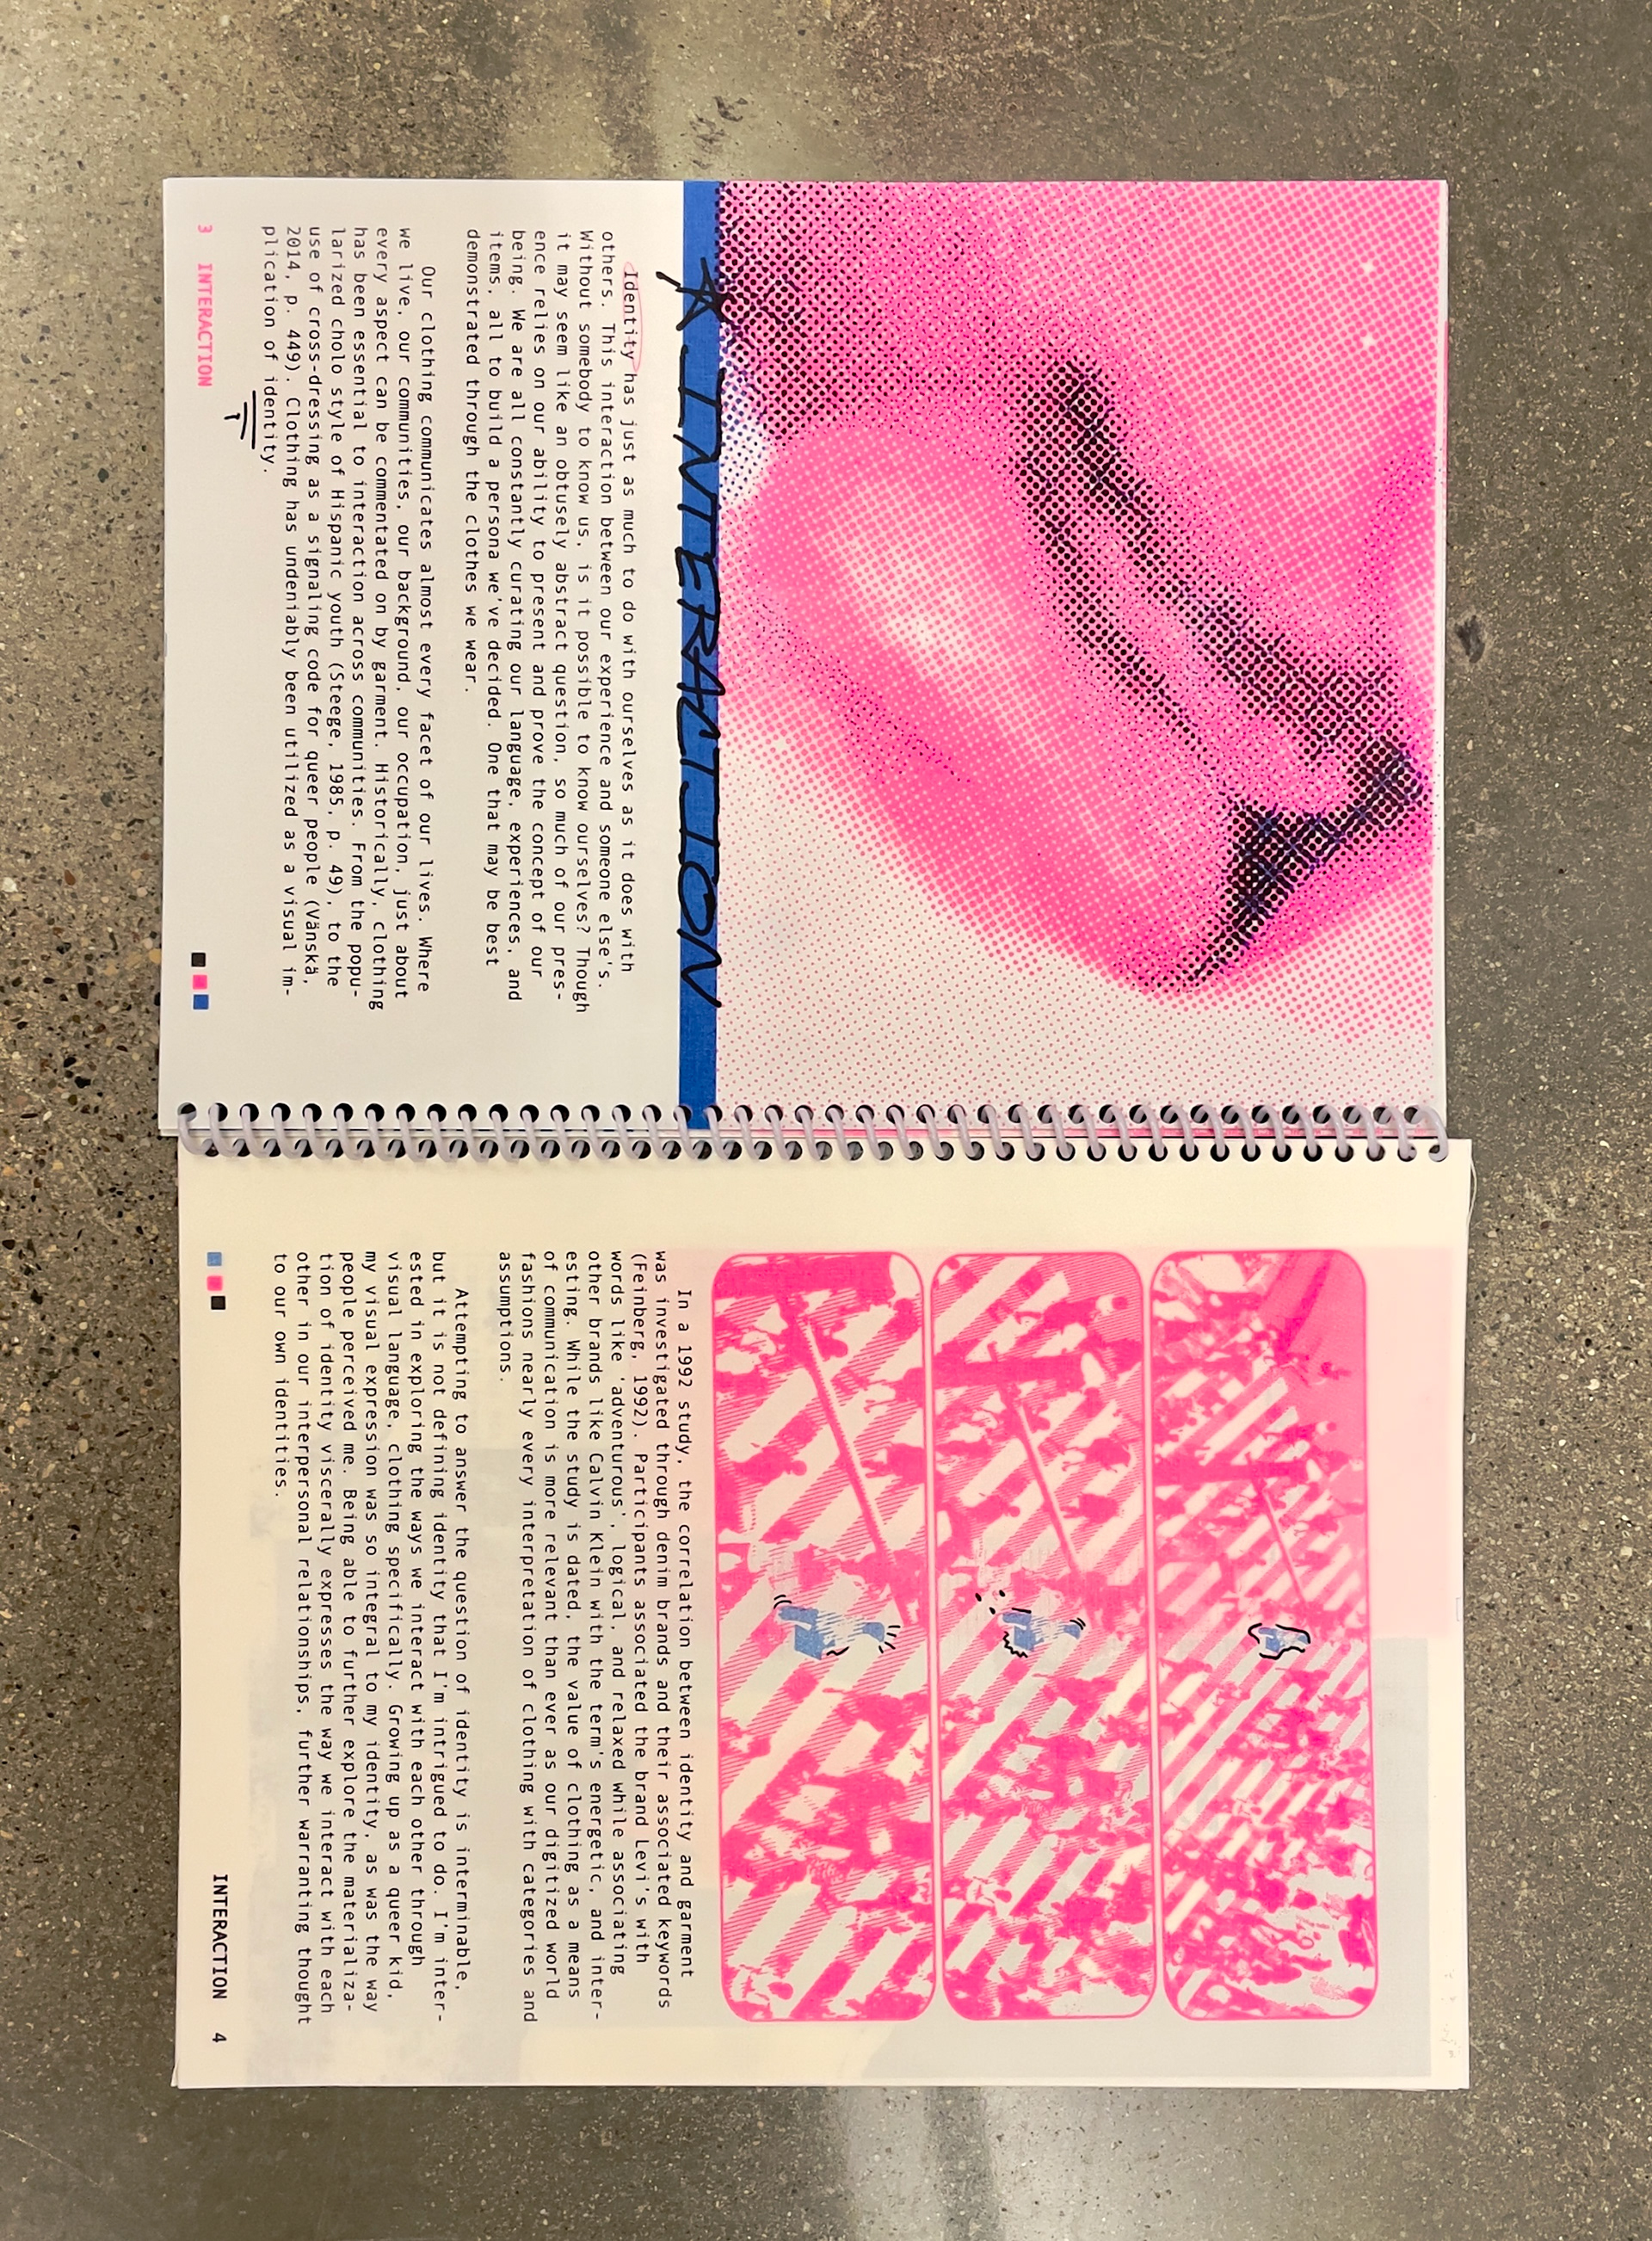 INTERACTION
Identity has just as much to do with ourselves as it does with
others. This interaction between our experience and someone else's.
Without somebody to know us, is it possible to know ourselves? Though
it may seem like an obtusely abstract question, so much of our pres-
ence relies on our ability to present and prove the concept of our
being. We are all constantly curating our language, experiences, and
items, all to build a persona we've decided. One that may be best
demonstrated through the clothes we wear.
Our clothing communicates almost every facet of our lives. Where
we live, our communities, our background, our occupation, just about
every aspect can be commentated on by garment. Historically, clothing
has been essential to interaction across communities. From the popu-
larized cholo style of Hispanic youth (Steege, 1985, p. 49), to the
use of cross-dressing as a signaling code for queer people (Vänskä,
2014, p. 449). Clothing has undeniably been utilized as a visual im-
plication of identity.
3 INTERACTION
In a 1992 study, the correlation between identity and garment
was investigated through denim brands and their associated keywords
(Feinberg, 1992). Participants associated the brand Levi's with
words like 'adventurous', logical, and relaxed while associating
other brands like Calvin Klein with the term's energetic, and inter-
esting. While the study is dated, the value of clothing as a means
of communication is more relevant than ever as our digitized world
fashions nearly every interpretation of clothing with categories and
assumptions.
Attempting to answer the question of identity is interminable,
but it is not defining identity that I'm intrigued to do. I'm inter-
ested in exploring the ways we interact with each other through
visual language, clothing specifically. Growing up as a queer kid,
my visual expression was so integral to my identity, as was the way
people perceived me. Being able to further explore the materializa-
tion of identity viscerally expresses the way we interact with each
other in our interpersonal relationships, further warranting thought
to our own identities.
INTERACTION 4